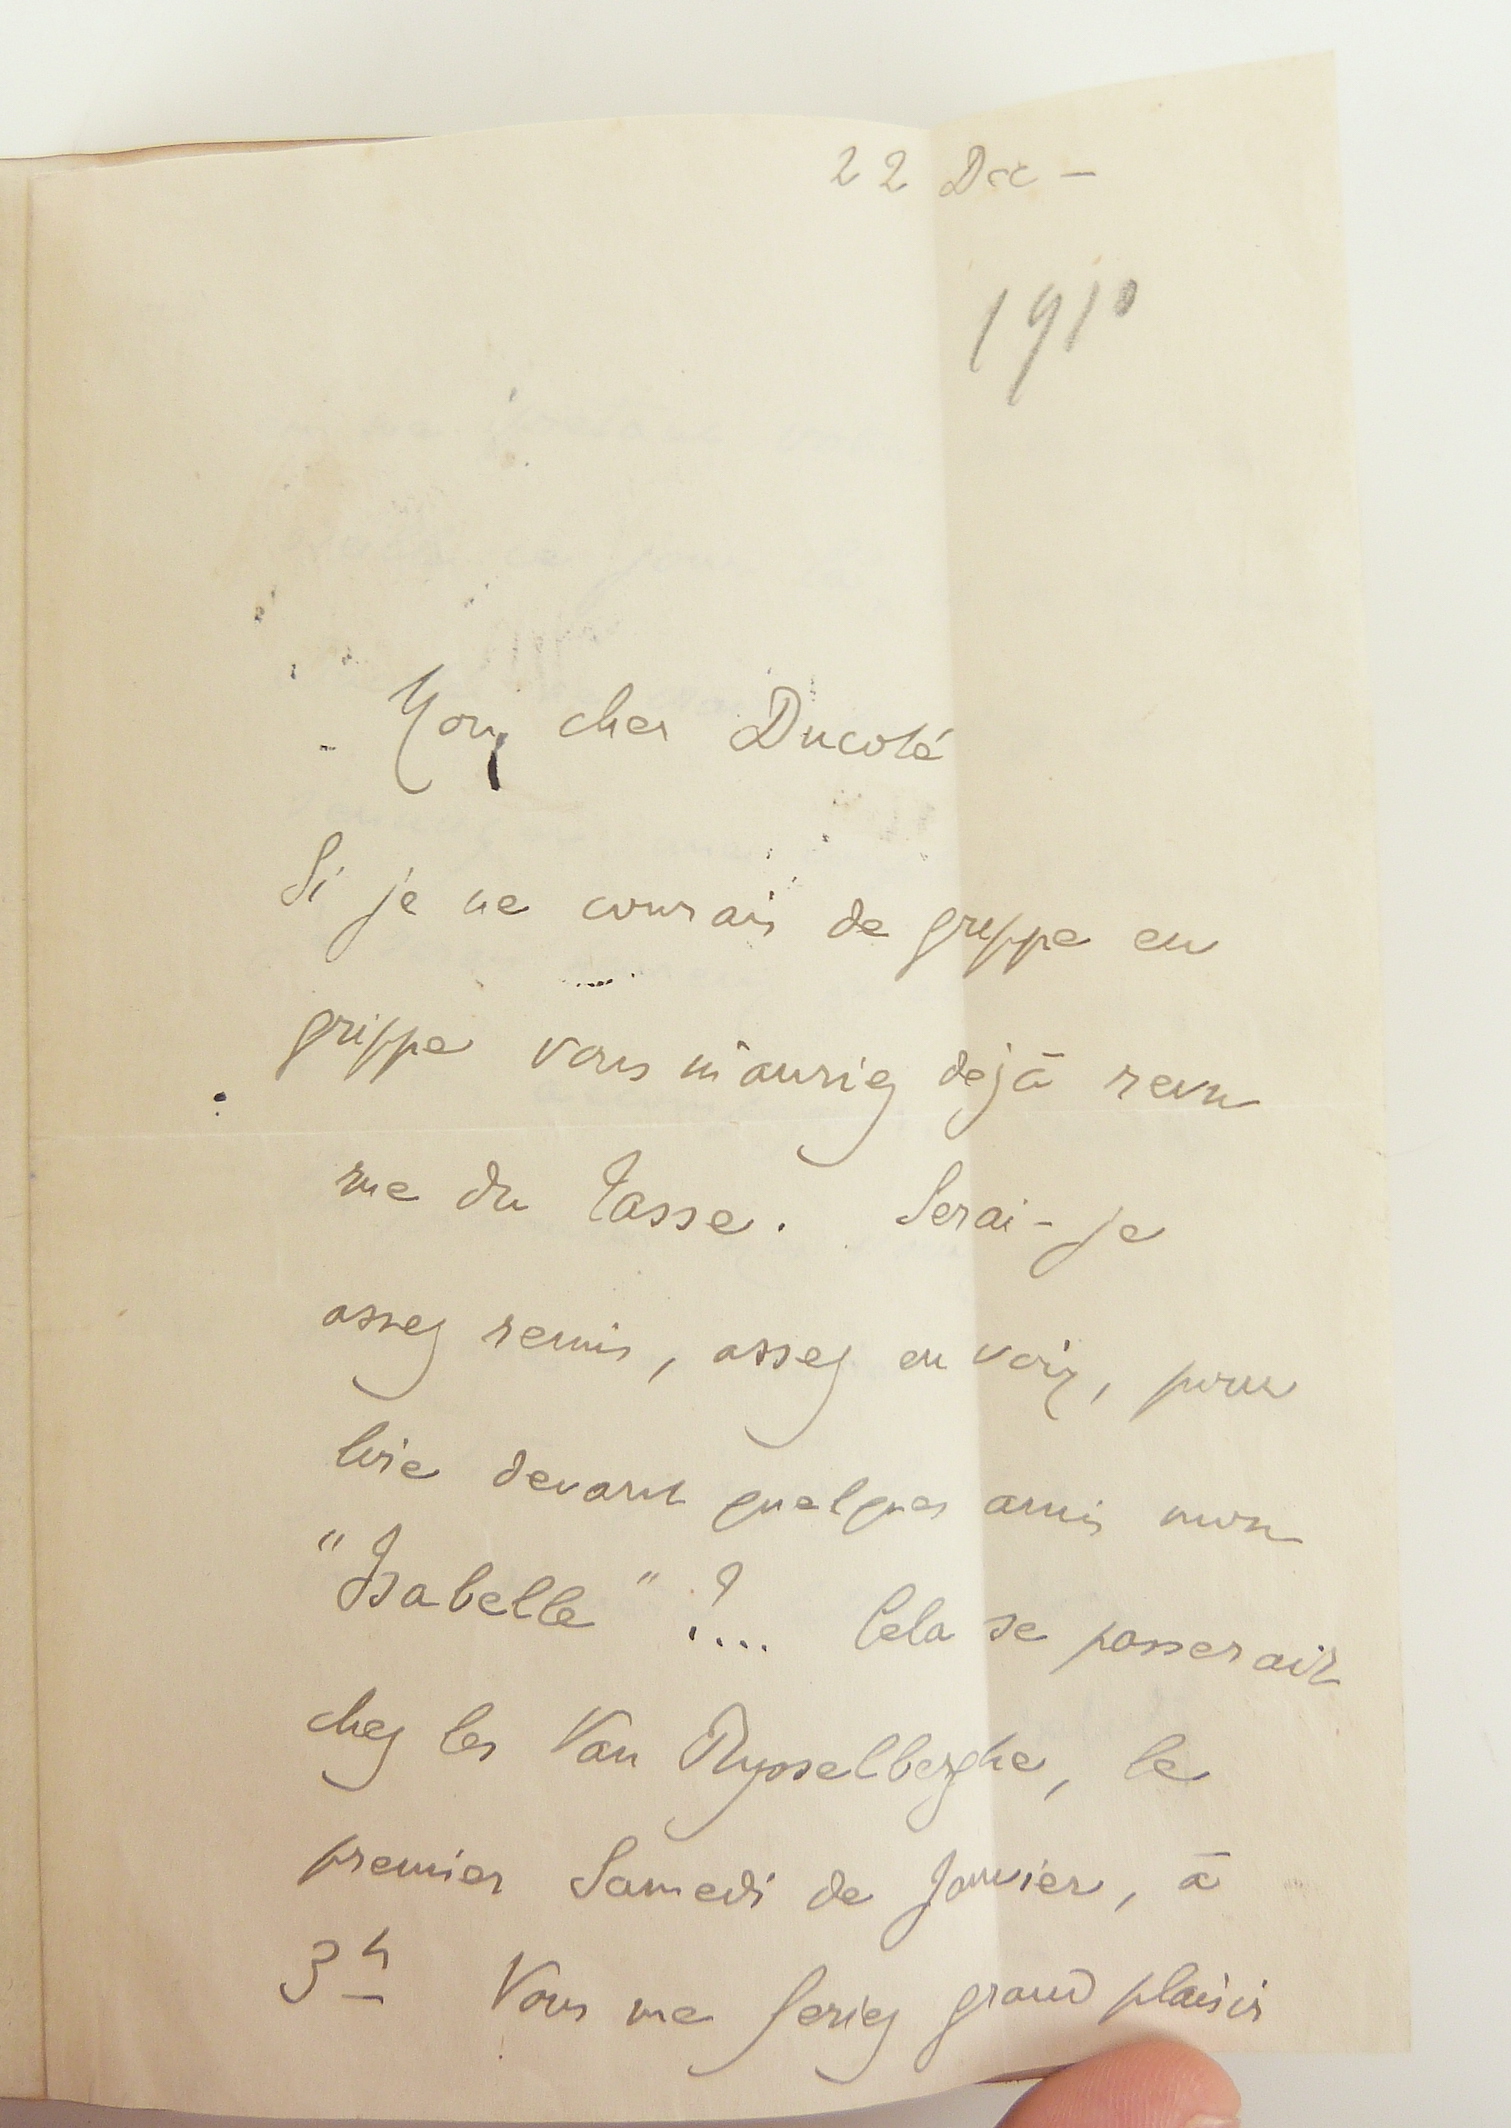 22 Dec -
1910
Mon cher Ducoté
Si je ne courais de grippe en
grippe vous m'auriez déjà revu
rue du Tasse. Serai-je
assez remis, assez en voix, pour
lire devant quelques amis mon
"Isabelle" ?... Cela se passerait
chez les Van Rysselberghe, le
premier Samedi de Janvier, à
3h Vous me feriez grand plaisir